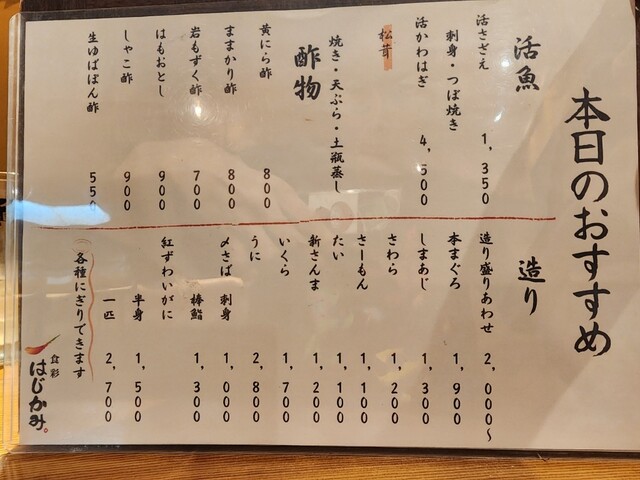 本日のおすすめ
活魚
活さざえ
刺身・つぼ焼き 1,350
活かわはぎ 4,500
松茸
焼き・天ぷら・土瓶蒸し
酢物
黄にら酢 800
ままかり酢 800
岩もずく酢 700
はもおとし 900
しゃこ酢 900
生ゆばぽん酢 550
造り
造り盛りあわせ 2,000～
本まぐろ 1,900
しまあじ 1,300
さわら 1,200
さーもん 1,100
たい 1,100
新さんま 1,200
いくら 1,700
うに 2,800
〆さば 刺身 1,000
棒鮨 1,300
紅ずわいがに
半身 1,500
一匹 2,700
各種にぎりできます
食彩
はじかみ。